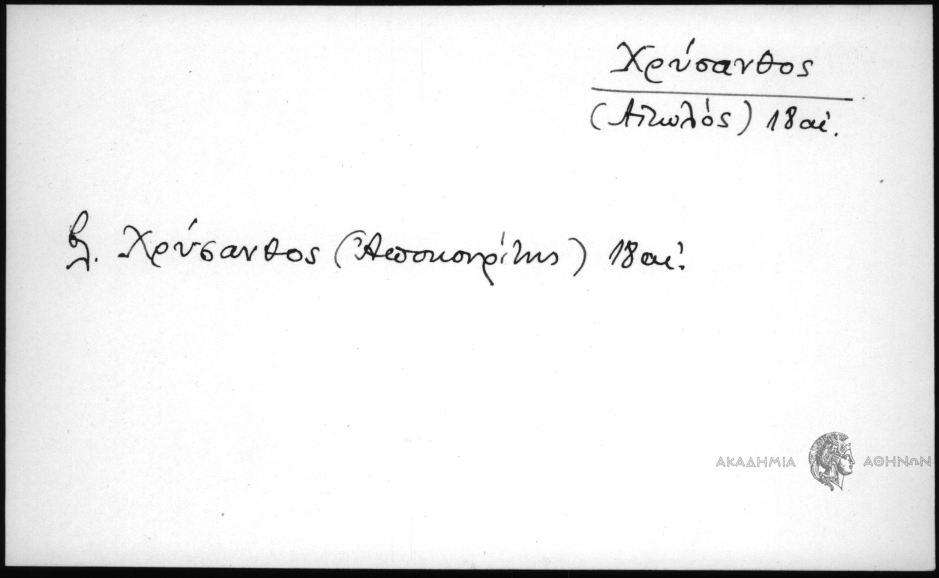 Χρύσανθος
(Αἰτωλός) 18 αἰ.
βλ. Χρύσανθος (Ἀποκουρίτης) 18 αἰ.
ΑΚΑΔΗΜΙΑ ΑΘΗΝΩΝ